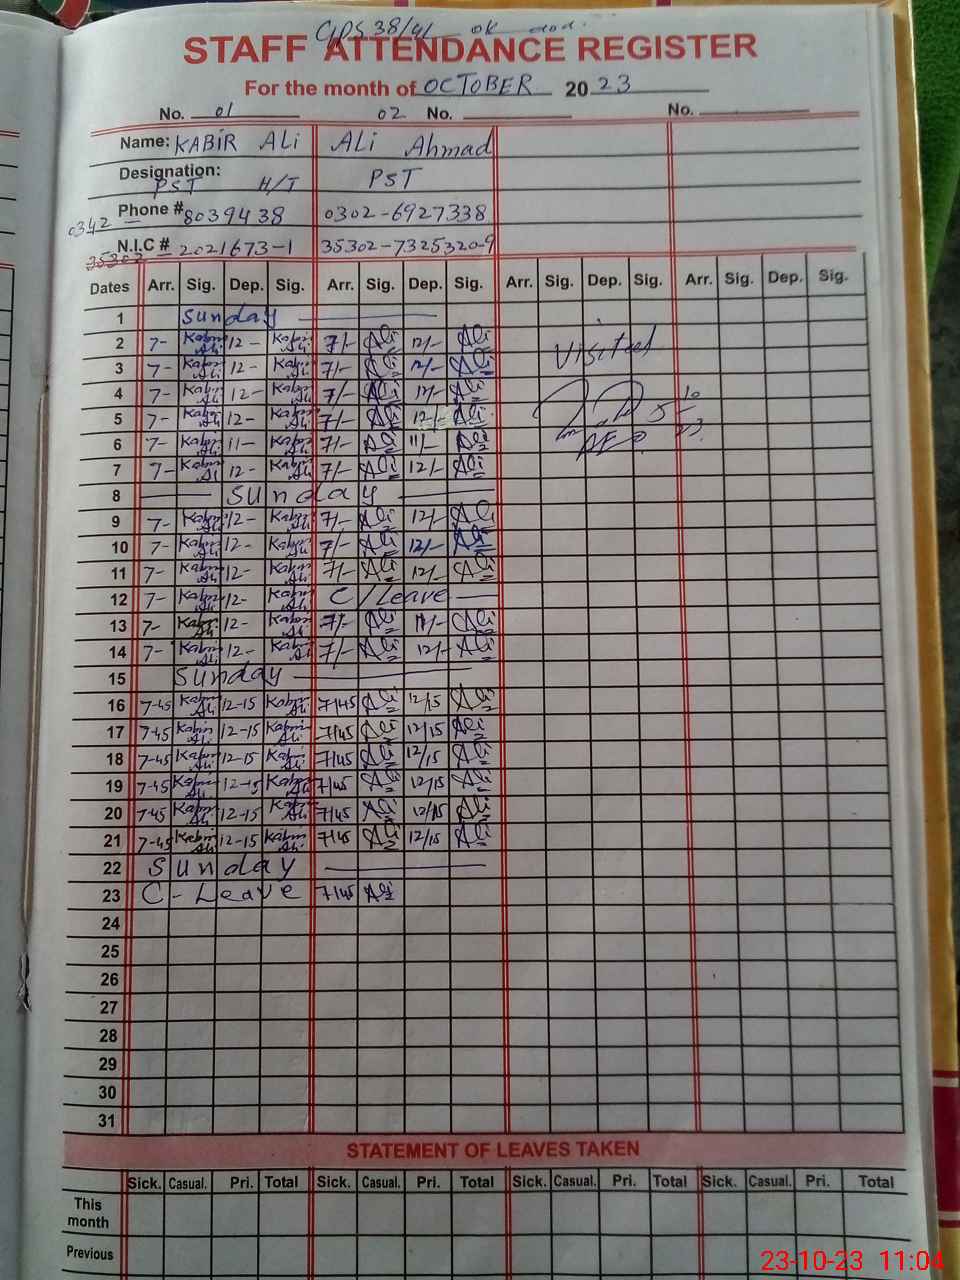 GPS 38/4L ok
STAFF ATTENDANCE REGISTER
For the month of OCTOBER 2023
No. 01 02 No. No.
Name: KABIR Ali ALi Ahmad
Designation: PST H/T PST
Phone # 0342 - 8039438 0302-6927338
N.I.C # 35302 - 2021673-1 35302-7325320-9
Dates Arr. Sig. Dep. Sig. Arr. Sig. Dep. Sig. Arr. Sig. Dep. Sig. Arr. Sig. Dep. Sig.
1 Sunday
2 7- Kabir Ali 12- Kabir Ali 7/- Ali 12/- Ali
3 7- Kabir Ali 12- Kabir Ali 7/- Ali 12/- Ali Visited
4 7- Kabir Ali 12- Kabir Ali 7/- Ali 12/- Ali
5 7- Kabir Ali 12- Kabir Ali 7/- Ali 12/- Ali 5 10 23
6 7- Kabir Ali 11- Kabir Ali 7/- Ali 11/- Ali AEO
7 7- Kabir Ali 12- Kabir Ali 7/- Ali 12/- Ali
8 Sunday
9 7- Kabir Ali 12- Kabir Ali 7/- Ali 12/- Ali
10 7- Kabir Ali 12- Kabir Ali 7/- Ali 12/- Ali
11 7- Kabir Ali 12- Kabir Ali 7/- Ali 12/- Ali
12 7- Kabir Ali 12- Kabir Ali C/Leave
13 7- Kabir Ali 12- Kabir Ali 7/- Ali 11/- Ali
14 7- Kabir Ali 12- Kabir Ali 7/- Ali 12/- Ali
15 Sunday
16 7-45 Kabir Ali 12-15 Kabir Ali 7/45 Ali 12/15 Ali
17 7-45 Kabir Ali 12-15 Kabir Ali 7/45 Ali 12/15 Ali
18 7-45 Kabir Ali 12-15 Kabir Ali 7/45 Ali 12/15 Ali
19 7-45 Kabir Ali 12-15 Kabir Ali 7/45 Ali 12/15 Ali
20 7-45 Kabir Ali 12-15 Kabir Ali 7/45 Ali 12/15 Ali
21 7-45 Kabir Ali 12-15 Kabir Ali 7/45 Ali 12/15 Ali
22 Sunday
23 C-Leave 7/45 Ali
24
25
26
27
28
29
30
31
STATEMENT OF LEAVES TAKEN
Sick. Casual. Pri. Total Sick. Casual. Pri. Total Sick. Casual. Pri. Total Sick. Casual. Pri. Total
This month
Previous
23-10-23 11:04